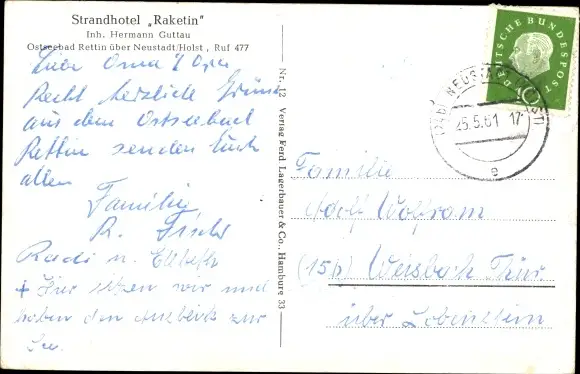 Strandhotel „Raketin"
Inh. Hermann Guttau
Ostseebad Rettin über Neustadt/Holst., Ruf 477
Liebe Oma & Opa
Recht herzliche Grüsse
aus dem Ostseebad
Rettin senden Euch
allen
Familie
R. Fischer
Rudi u. Elsbeth
+ Hier sitzen wir und
haben den Ausblick zur
See.
Nr. 12 Verlag Ferd. Lagerbauer & Co., Hamburg 33
DEUTSCHE BUNDESPOST
10
(24b) NEUSTADT (HOLST)
25.5.61 17
e
Familie
Adolf Wolfram
(15b) Weisbach Thür
über Lobenstein